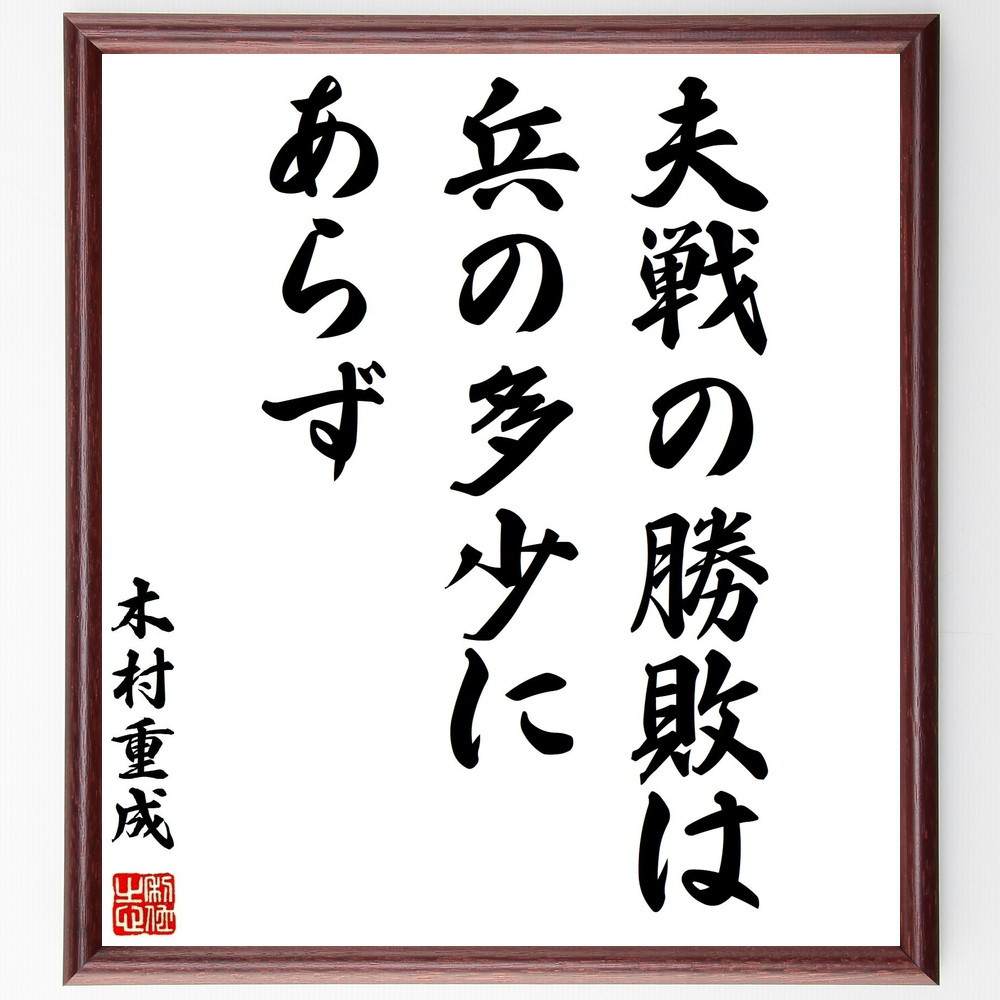 夫戦の勝敗は
兵の多少に
あらず
木村重成